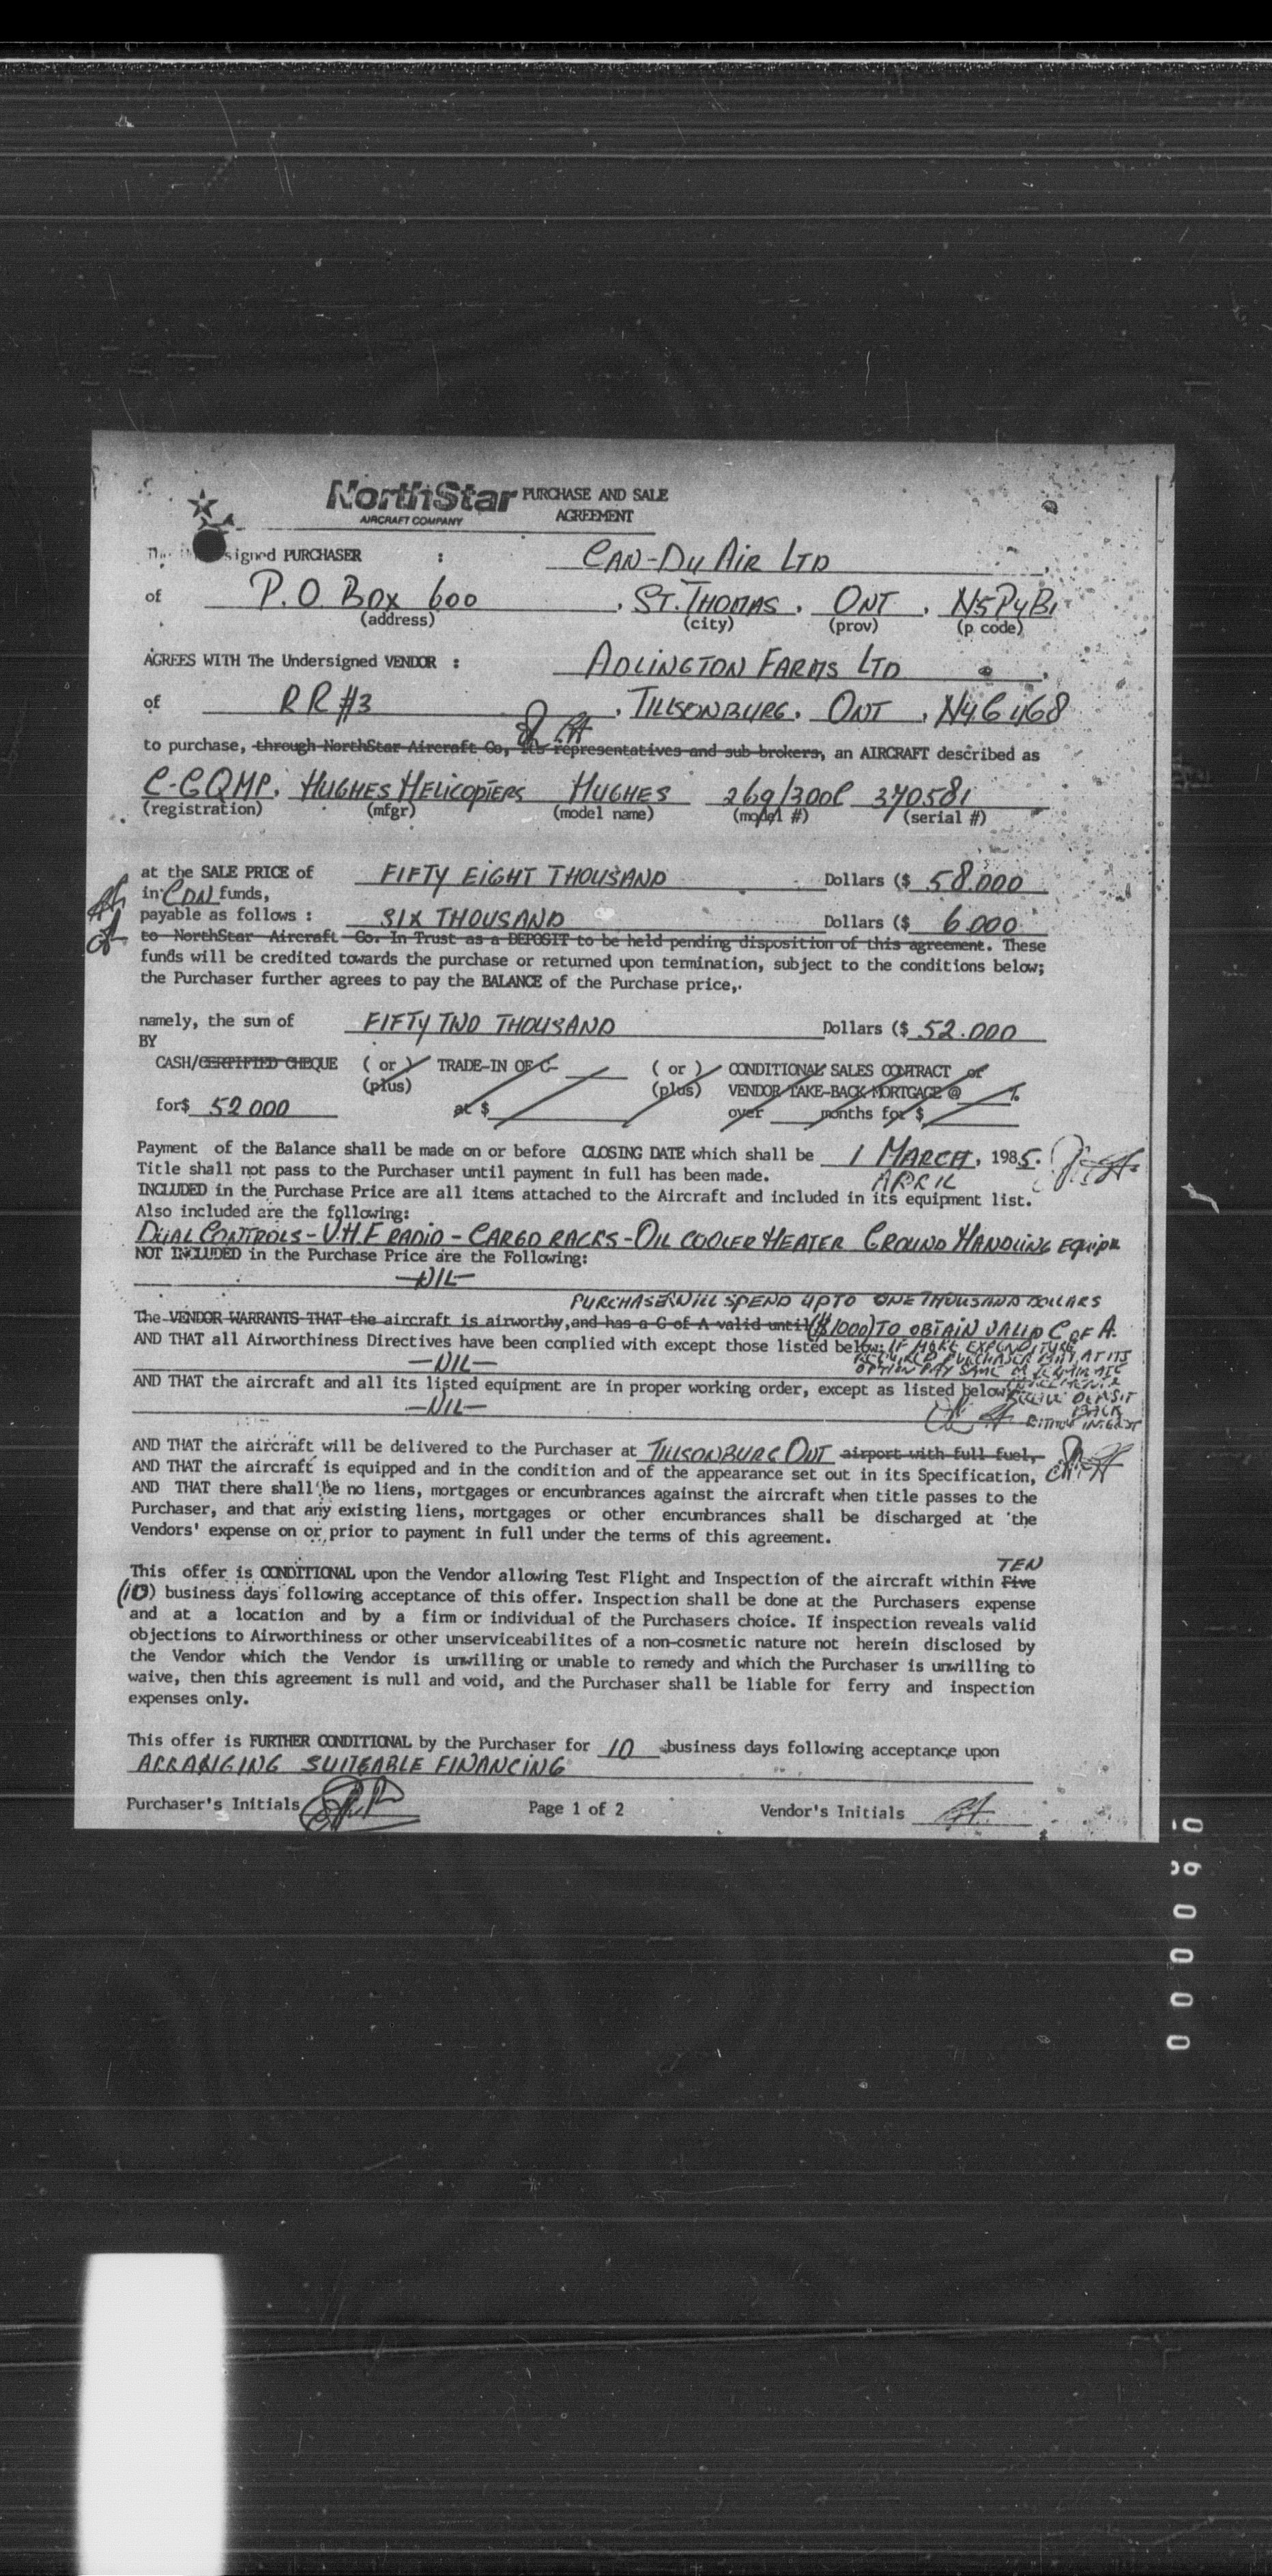 NorthStar PURCHASE AND SALE
AIRCRAFT COMPANY AGREEMENT
The signed PURCHASER : CAN-DU AIR LTD
of P.O. BOX 600, ST. THOMAS, ONT, N5P4B1
(address) (city) (prov) (p code)
AGREES WITH The Undersigned VENDOR : ADLINGTON FARMS LTD
of RR #3, TILLSONBURG, ONT, N4G4G8
to purchase, through NorthStar Aircraft Co, its representatives and sub-brokers, an AIRCRAFT described as
C-GQMP, HUGHES HELICOPTERS HUGHES 269/300C 370581
(registration) (mfgr) (model name) (model #) (serial #)
at the SALE PRICE of FIFTY EIGHT THOUSAND Dollars ($ 58.000
in CDN funds,
payable as follows : SIX THOUSAND Dollars ($ 6.000
to NorthStar Aircraft Co. In Trust as a DEPOSIT to be held pending disposition of this agreement. These
funds will be credited towards the purchase or returned upon termination, subject to the conditions below;
the Purchaser further agrees to pay the BALANCE of the Purchase price,.
namely, the sum of FIFTY TWO THOUSAND Dollars ($ 52.000
BY
CASH/CERTIFIED CHEQUE ( or ) TRADE-IN OF C- ( or ) CONDITIONAL SALES CONTRACT or
(plus) (plus) VENDOR TAKE-BACK MORTGAGE @ %
for$ 52000 at $ over months for $
Payment of the Balance shall be made on or before CLOSING DATE which shall be 1 MARCH, 1985.
Title shall not pass to the Purchaser until payment in full has been made. APRIL
INCLUDED in the Purchase Price are all items attached to the Aircraft and included in its equipment list.
Also included are the following:
DUAL CONTROLS - V.H.F RADIO - CARGO RACKS - OIL COOLER HEATER GROUND HANDLING EQUIP
NOT INCLUDED in the Purchase Price are the Following:
-NIL-
PURCHASER WILL SPEND UP TO ONE THOUSAND DOLLARS
The VENDOR WARRANTS THAT the aircraft is airworthy, and has a C of A valid until ($1000) TO OBTAIN VALID C OF A.
AND THAT all Airworthiness Directives have been complied with except those listed below: IF MORE EXPENDITURE
-NIL- REQUIRED PURCHASER MAY, AT ITS
OPTION PAY SAME OR TERMINATE
AND THAT the aircraft and all its listed equipment are in proper working order, except as listed below
-NIL- DEPOSIT
BACK
WITHOUT INTEREST
AND THAT the aircraft will be delivered to the Purchaser at TILLSONBURG ONT airport with full fuel,
AND THAT the aircraft is equipped and in the condition and of the appearance set out in its Specification,
AND THAT there shall be no liens, mortgages or encumbrances against the aircraft when title passes to the
Purchaser, and that any existing liens, mortgages or other encumbrances shall be discharged at the
Vendors' expense on or prior to payment in full under the terms of this agreement.
TEN
This offer is CONDITIONAL upon the Vendor allowing Test Flight and Inspection of the aircraft within Five
(10) business days following acceptance of this offer. Inspection shall be done at the Purchasers expense
and at a location and by a firm or individual of the Purchasers choice. If inspection reveals valid
objections to Airworthiness or other unserviceabilites of a non-cosmetic nature not herein disclosed by
the Vendor which the Vendor is unwilling or unable to remedy and which the Purchaser is unwilling to
waive, then this agreement is null and void, and the Purchaser shall be liable for ferry and inspection
expenses only.
This offer is FURTHER CONDITIONAL by the Purchaser for 10 business days following acceptance upon
ARRANGING SUITEABLE FINANCING
Purchaser's Initials Page 1 of 2 Vendor's Initials